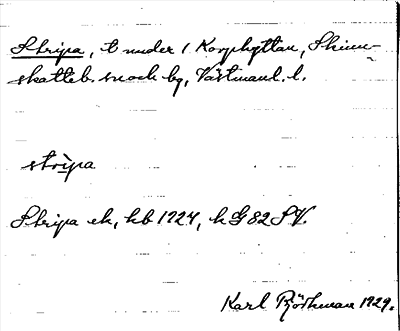 Stripa, t under 1 Korphyttan, Skinn-
skatteb. snoch bg, Västmanl. l.
stripa
Stripa ek, kb 1724, k G 82 SV.
Karl Björkman 1929.